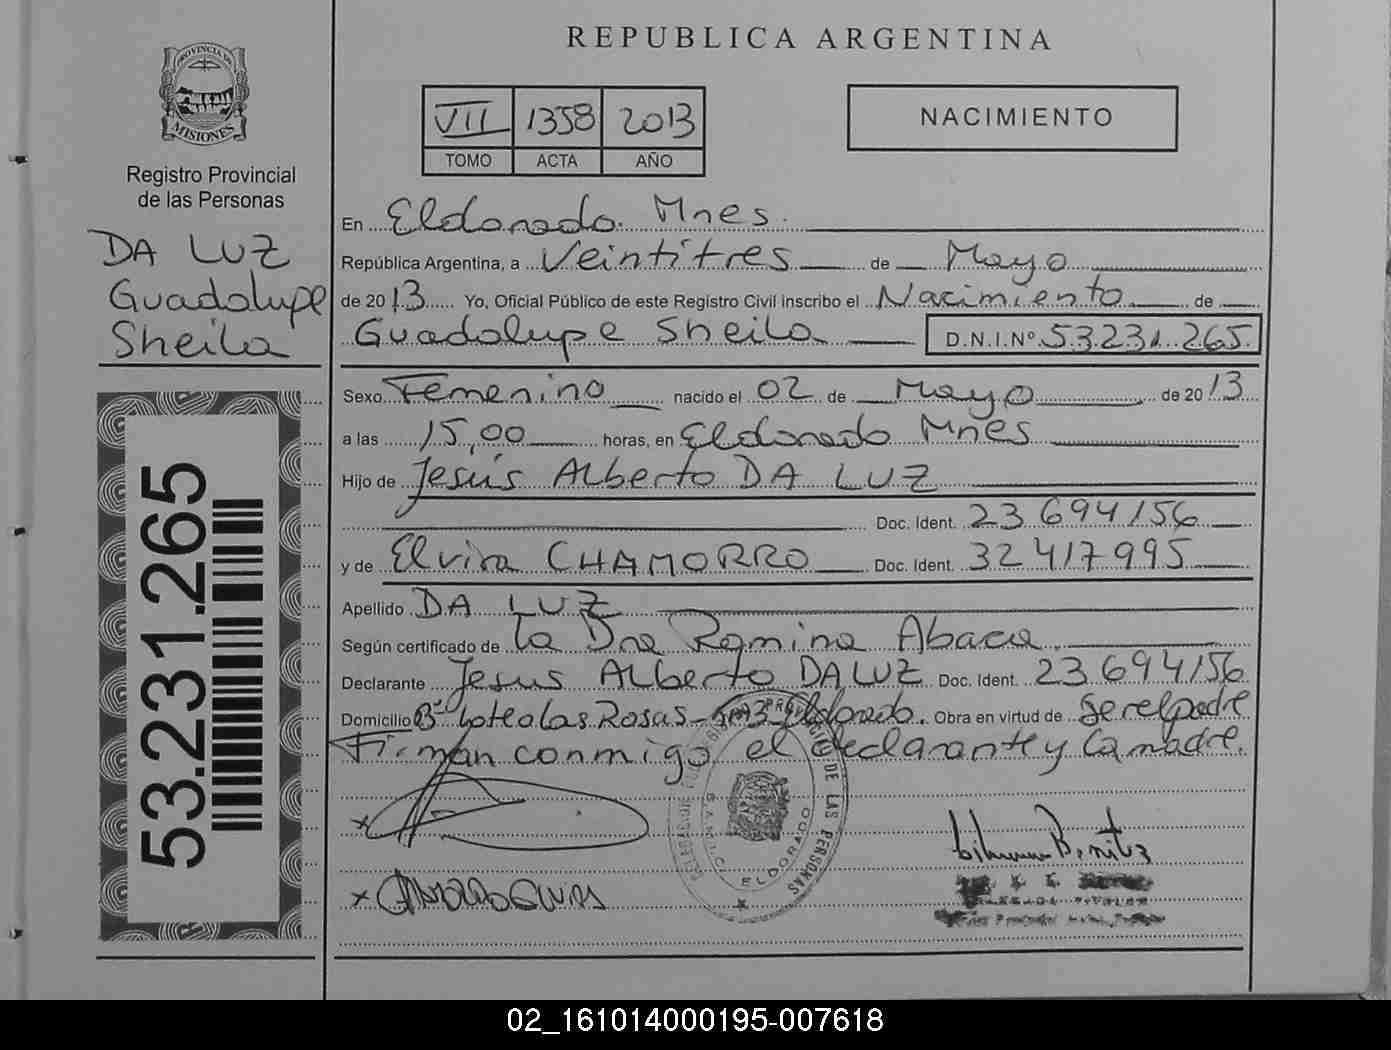 REPUBLICA ARGENTINA
PROVINCIA DE
MISIONES
Registro Provincial
de las Personas
DA LUZ
Guadalupe
Sheila
53.231.265
VII 1358 2013
TOMO ACTA AÑO
NACIMIENTO
En Eldorado. Mnes.
República Argentina, a Veintitres de Mayo
de 2013 Yo, Oficial Público de este Registro Civil inscribo el Nacimiento de
Guadalupe Sheila D.N.I.Nº 53.231.265.
Sexo Femenino nacido el 02 de Mayo de 2013
a las 15,00 horas, en Eldorado Mnes
Hijo de Jesús Alberto DA LUZ
Doc. Ident. 23 694 156
y de Elvira CHAMORRO Doc. Ident. 32 417 995
Apellido DA LUZ
Según certificado de la Dra Romina Abaca
Declarante Jesus Alberto DA LUZ Doc. Ident. 23 694 156
Domicilio Bº Lote a las Rosas - Eldorado. Obra en virtud de Ser el padre
Firman conmigo el declarante y la madre.
DE LAS PERSONAS
ELDORADO
Benitez
02_161014000195-007618